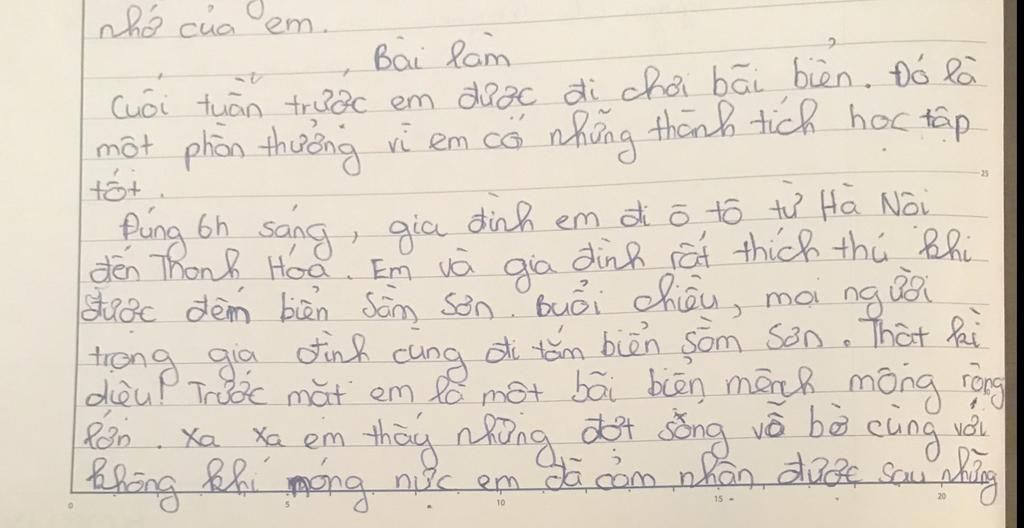 nhớ của em.
Bài làm
Cuối tuần trước em được đi chơi bãi biển. Đó là
một phần thưởng vì em có những thành tích học tập
tốt.
Đúng 6h sáng, gia đình em đi ô tô từ Hà Nội
đến Thanh Hóa. Em và gia đình rất thích thú khi
được đếm biển Sầm Sơn. Buổi chiều, mọi người
trong gia đình cùng đi tắm biển Sầm Sơn. Thật kì
diệu! Trước mắt em là một bãi biển mênh mông rộng
lớn. Xa xa em thấy những đợt sóng vỗ bờ cùng với
không khí nóng nực em đã cảm nhận được sau những
25
0 5 10 15 20